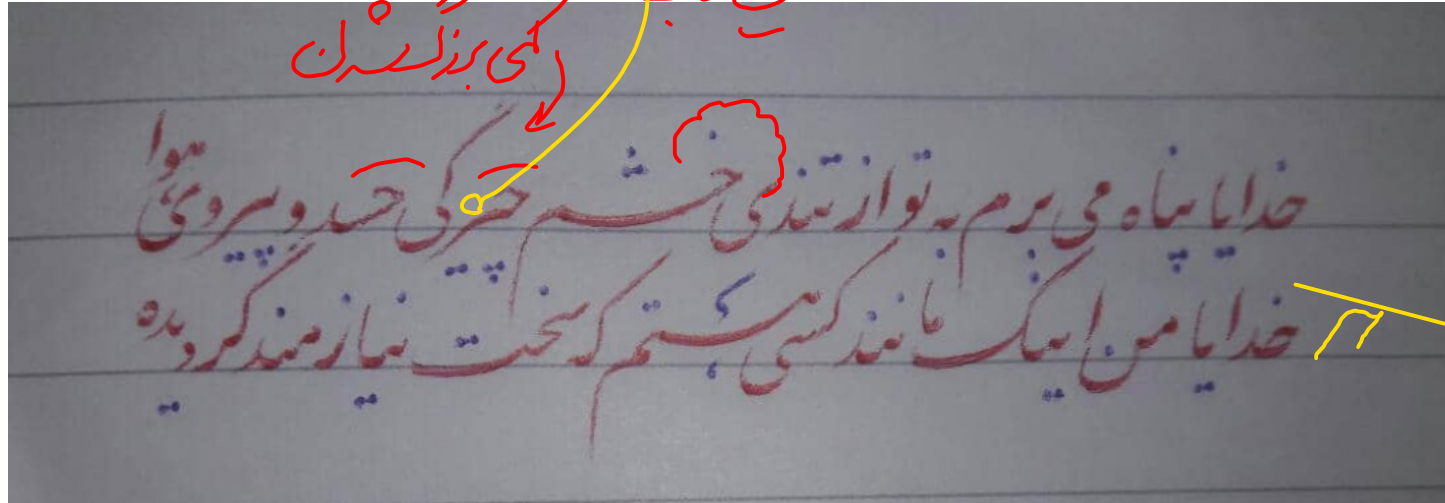 کمی بزرگ شدن
خدایا پناه می برم به تو از تندی خشم چیرگی حسد و پیروی هوا
خدایا من اینک مانند کسی هستم که سخت نیازمند گردیده